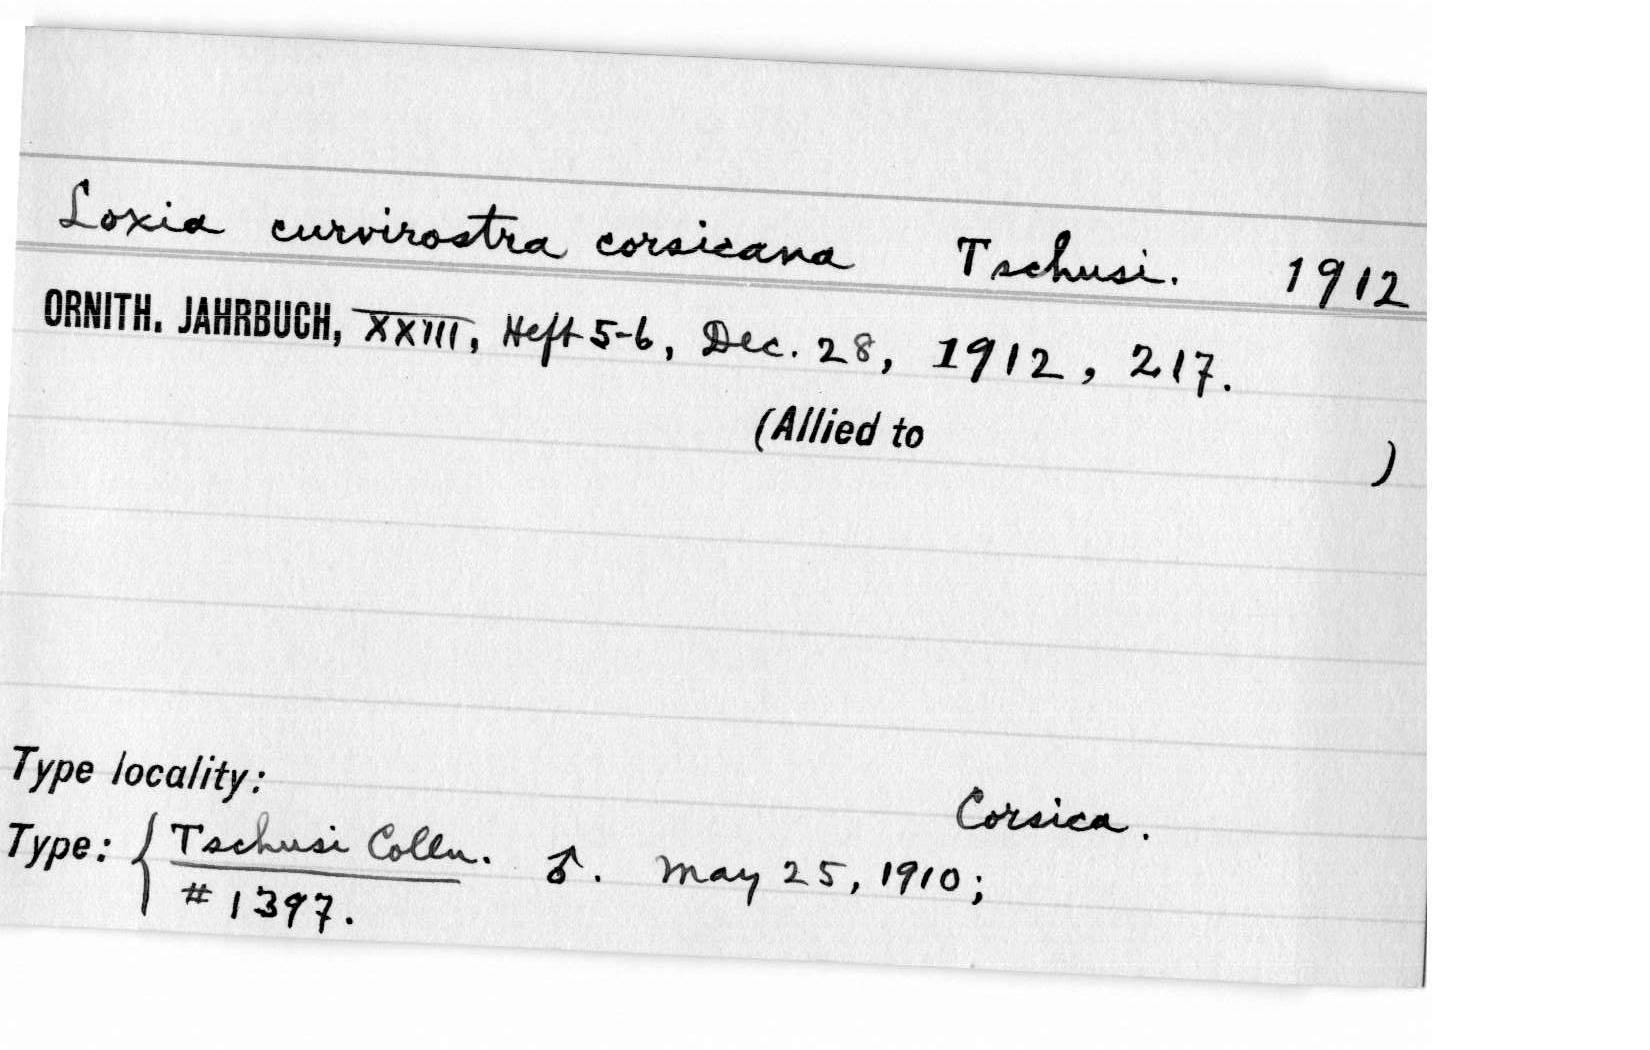 Loxia curvirostra corsicana Tschusi. 1912
ORNITH. JAHRBUCH, XXIII, Heft 5-6, Dec. 28, 1912, 217.
(Allied to )
Type locality: Corsica.
Type: { Tschusi Colln. ♂. May 25, 1910;
# 1397.